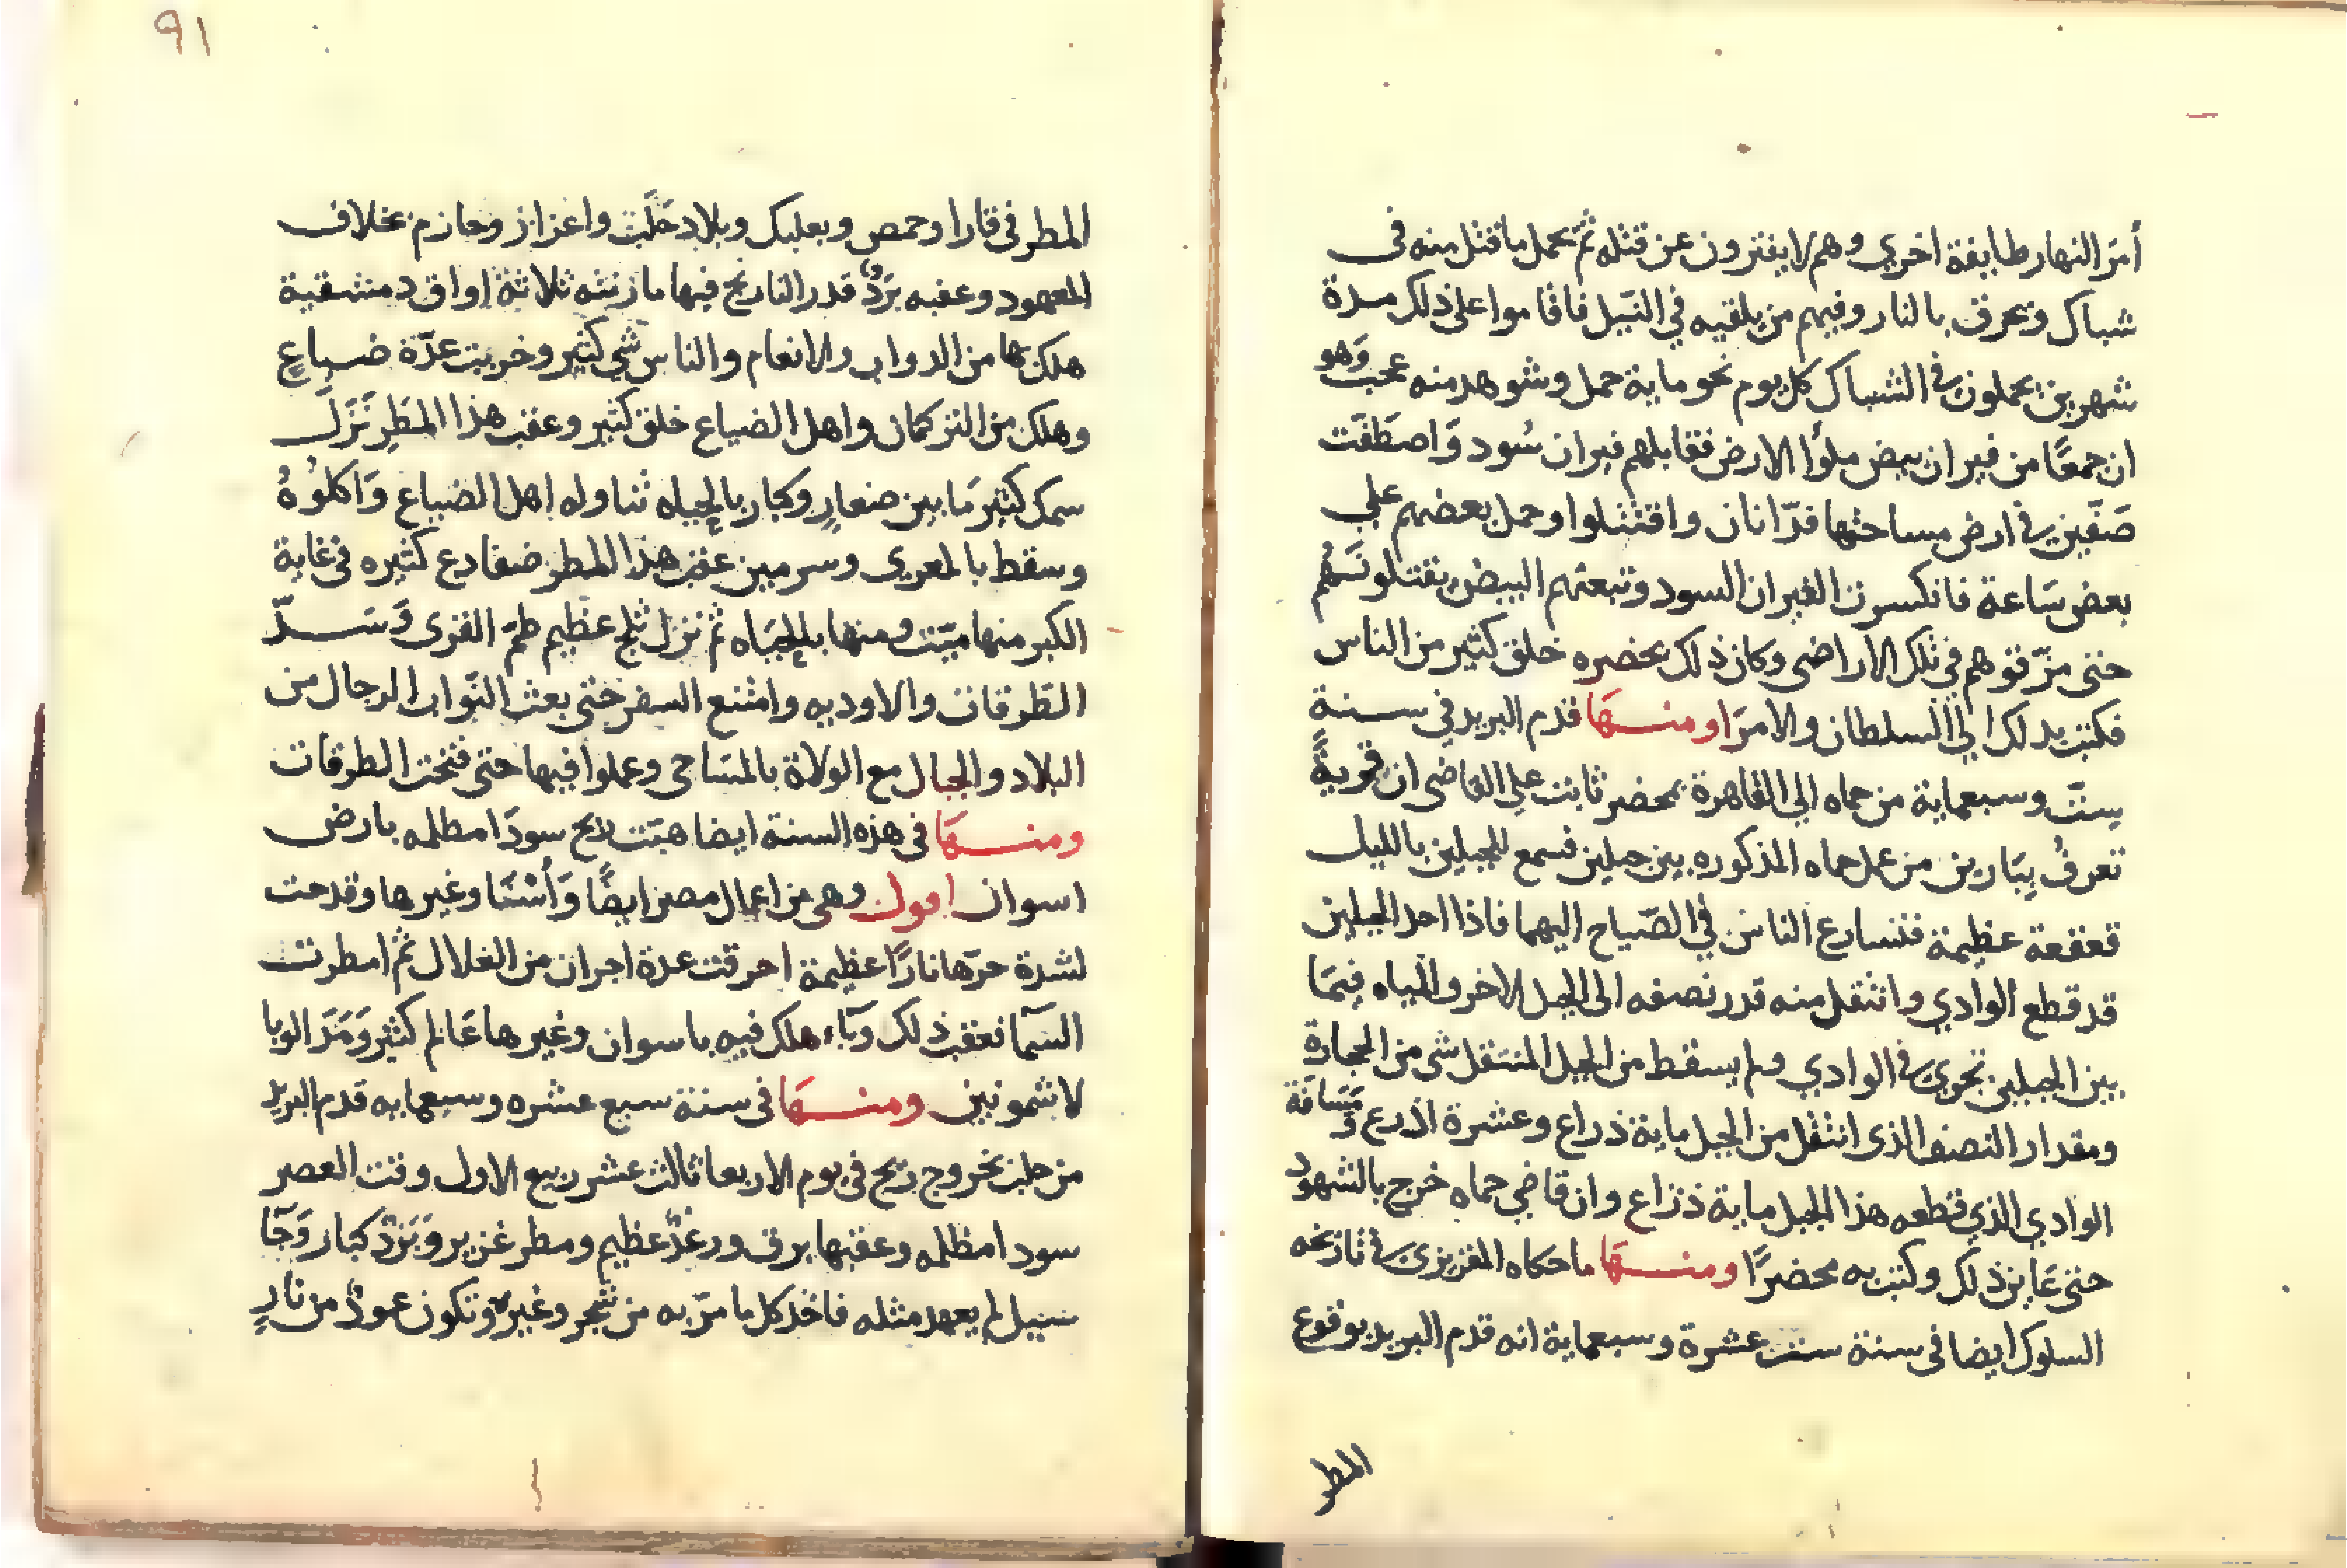 أمرَ النهار طايفة اخري وهم لا يفترون عن قتله ثم يحمل ما قتل منه فى
شباك ويحرق بالنار وفيهم من يلقيه في النّيل فاقاموا على ذلك مدة
شهرين يحملون في الشباك كل يوم نحو ماية حمل وشوهد منه عجب وَهو
ان جمعًا من فيران بيض ملوُا الارض فقابلهم فيران سُود وَاصطَفت
صَفّين في ارض مساحتها فدّانان واقتتلوا وحمل بعضهم علي
بعض سَاعة فانكسرت الفيران السود وتبعتهم البيض يقتلونَهُم
حتى مزّقوهم في تلك الاراضى وكان ذلك بحضره خلق كثير من الناس
فكتب بدلك الي السلطان والامرَا ومنـها قدم البريد في سنة
ستّ وسبعماية من حماه الي القاهرة بمحضر ثابت علي القاضى ان قريةً
تعرفُ بِبَارين من عمل حماه المذكوره بين جبلين فسمع للجبلين بالليل
قعقعة عظيمة فتسارع الناس في الصّباح اليهما فاذا احد الجبلين
قد قطع الوادي وانتقل منه قدر نصفه الى الجبل الاخر والمياه فيمَا
بين الجبلين تجرى في الوادي ولم يسقط من الجبل المنتقل شى من الحجارة
ومقدار النصف الذى انتقل من الجبل ماية ذراع وعشرة اذرع ومَسَافة
الوادي الذي قطعه هذا الجبل ماية ذراع وان قاضي حماه خرج بالشهود
حتى عَاين ذلك وكتب به محضرًا ومنـها ما حكاه المقريزى في تاريخه
السلوك ايضا فى سنة ست عشرة وسبعماية انه قدم البريد بوقوع
المطر
٩١
المطر فى قارا وحمص وبعلبك وبلاد حَلَب واعزاز وحازم بخلاف
المعهود وعقبه بَرَدٌ قدر النارنج فيها ما زنته ثلاثة اواق دمشقية
هلك بها من الدواب والانعام والناس شي كثير وخربت عدّة ضياعٍ
وهلك من التركمان واهل الضياع خلق كثير وعقب هذا المطَرِ نَزَلَ
سمك كثير مَا بين صغارٍ وكبار بالحياه تناوله اهل الضياع وَاكلوُهُ
وسقط بالمعرى وسرمين عقب هذا المطر ضفادع كثيره فى غاية
الكبر منها ميّت ومنها بالحيَاه ثم نزل ثلج عظيم طمّ القرى وَسَـدّ
الطرقات والاوديه وامتنع السفر حتى بعث النّواب الرجال من
البلاد والجبال مع الولاة بالمسَاحى وعملوا فيها حتى فتحت الطرقات
ومنـها فى هذه السنة ايضا هبّت ريح سودَا مظلمه بارض
اسوان اقول وهى من اعمال مصر ايضًا وَأَسْنَا وغيرها وقدحت
لشدة حرّها نارًا عظيمة احرقت عدة اجران من الغلال ثم امطرت
السّمآ فعقب ذلك وبَآء هلك فيه باسوان وغيرها عَالم كثير وَمَدّ الوبا
لاشمونين ومنـها فى سنة سبع عشره وسبعمايه قدم البريد
من حلب بخروج ريح فى يوم الاربعا ثالث عشر ربيع الاول وقت العصر
سودا مظلمه وعقبها برق ورعْدٌ عظيم ومطر غزير وَبَرَدٌ كبار وَجَآ
سيل لم يعهد مثله فاخذ كل ما مرّ به من شجر وغيره وتكون عمودٌ من نارٍ